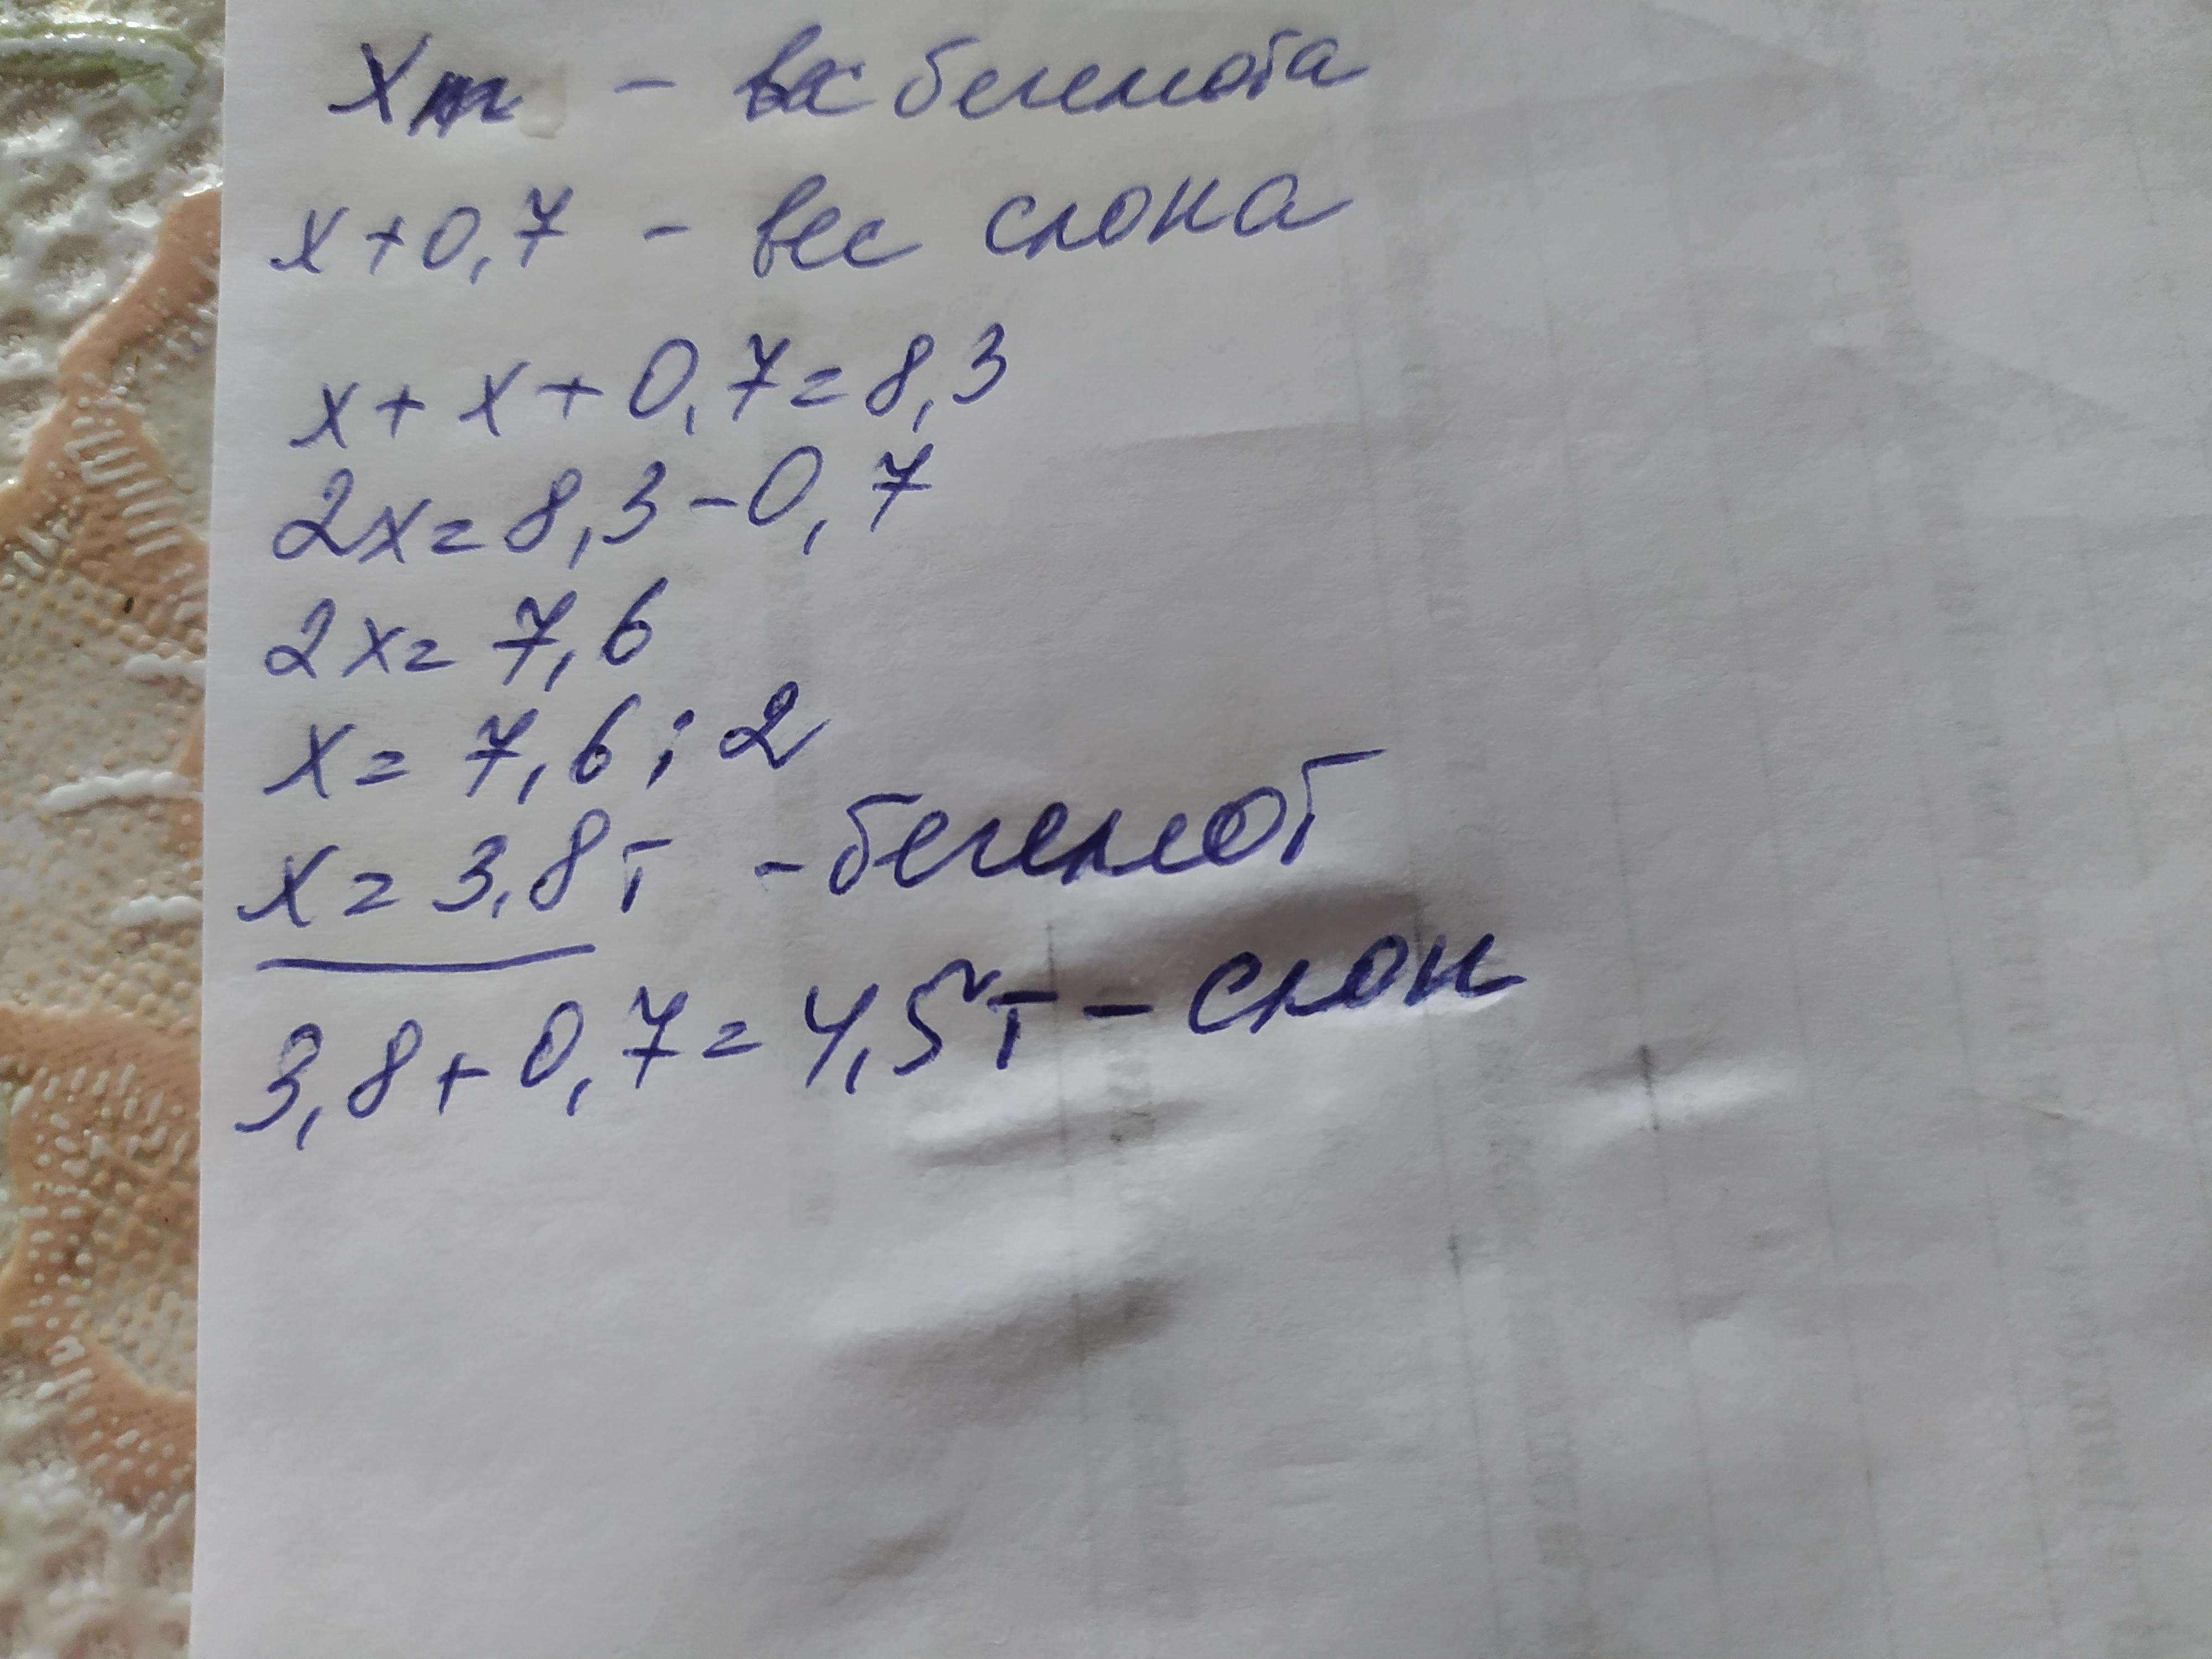 x - вес бегемота
x+0,7 - вес слона
x+x+0,7=8,3
2x=8,3-0,7
2x=7,6
x=7,6:2
x=3,8т - бегемот
3,8+0,7=4,5т - слон